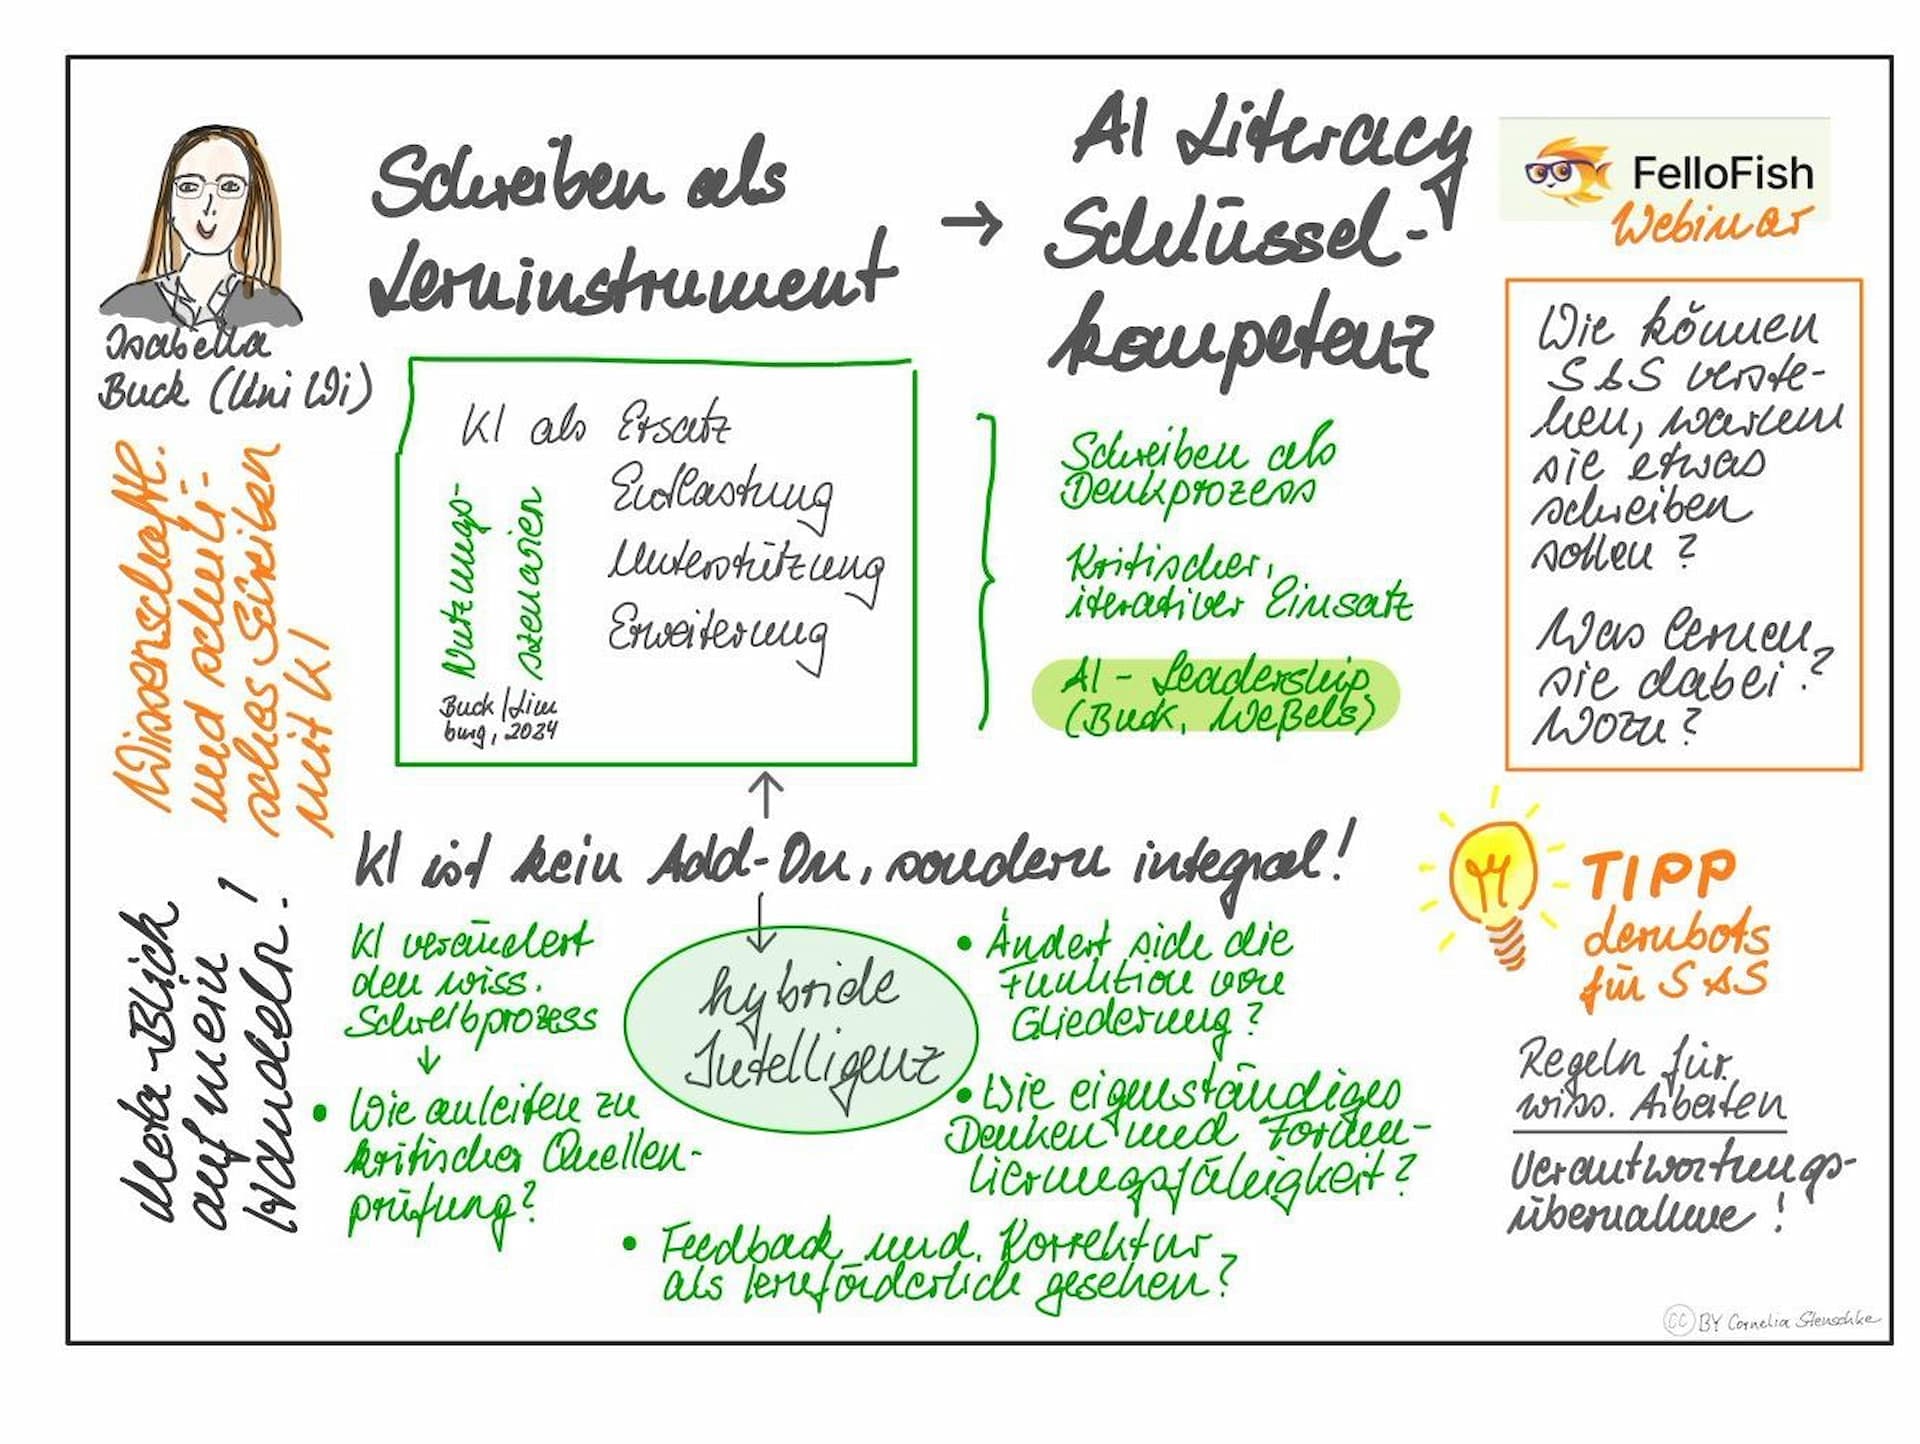 Schreiben als
Lerninstrument
→ AI Literacy
Schlüssel-
kompetenz
FelloFish
Webinar
Isabella
Buck (Uni Wi)
Wissenschaftl.
und schuli-
sches Schreiben
mit KI
KI als Ersatz
Entlastung
Unterstützung
Erweiterung
Nutzungs-
szenarien
Buck/Lim
burg, 2024
Schreiben als
Denkprozess
Kritischer,
iterativer Einsatz
AI - Leadership
(Buck, Weßels)
Wie können
S&S verste-
hen, warum
sie etwas
schreiben
sollen?
Was lernen
sie dabei?
Wozu?
KI ist kein Add-On, sondern integral!
Meta-Blick
auf mein
Handeln!
KI verändert
den wiss.
Schreibprozess
↓
• Wie anleiten zu
kritischer Quellen-
prüfung?
hybride
Intelligenz
• Ändert sich die
Funktion von
Gliederung?
• Wie eigenständiges
Denken und Formu-
lierungsfähigkeit?
• Feedback und Korrektur
als lernförderlich gesehen?
TIPP
Lernbots
für S&S
Regeln für
wiss. Arbeiten
Verantwortungs-
übernahme!
CC BY Cornelia Stenschke